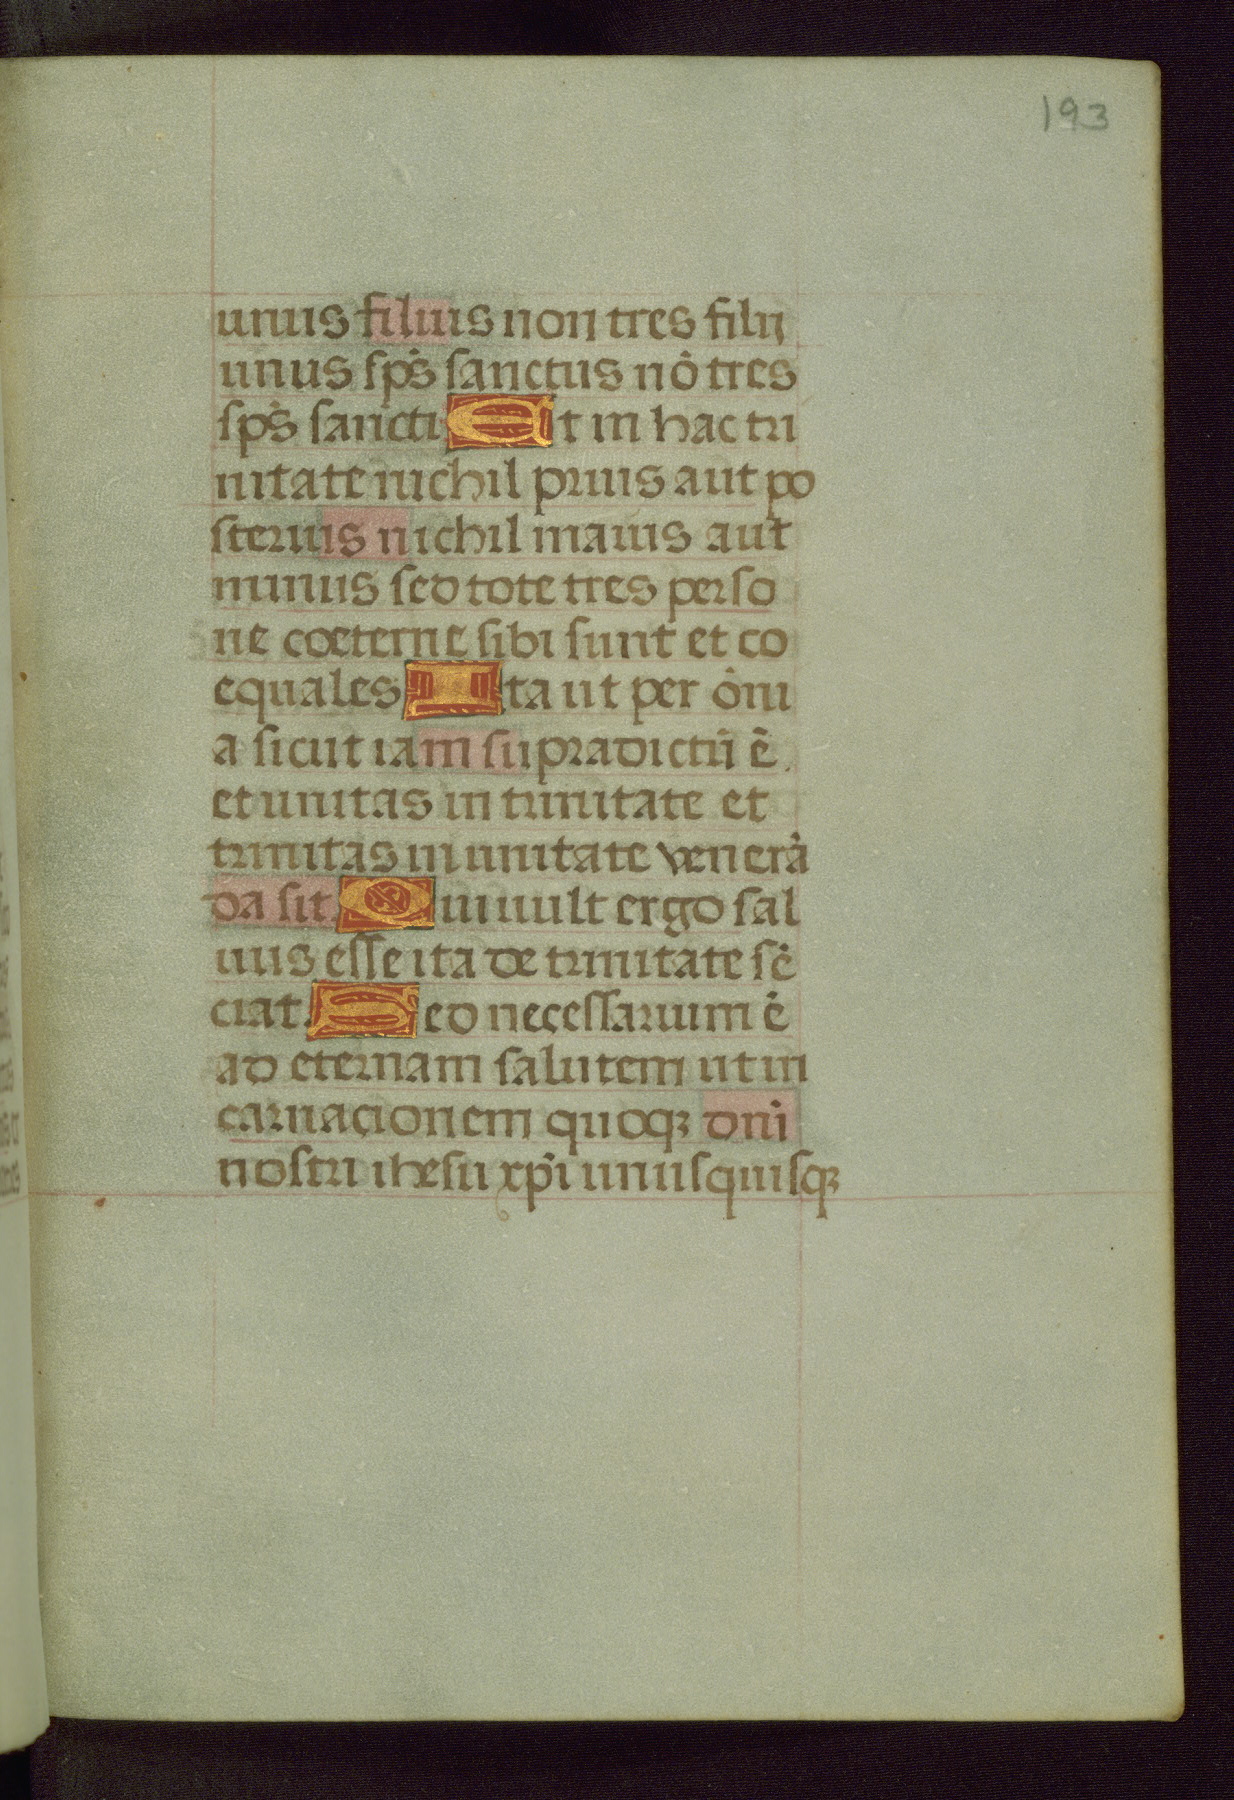 193
unus filius non tres filii
unus sp̃s sanctus nõ tres
sp̃s sancti Et in hac tri
nitate nichil prius aut po
sterius nichil maius aut
minus sed tote tres perso
ne coeterne sibi sunt et co
equales Ita ut per õni
a sicut iam supradictũ ẽ.
et unitas in trinitate et
trinitas in unitate venerã
da sit. Qui uult ergo sal
uus esse ita de trinitate sẽ
ciat. Sed necessarium ẽ
ad eternam salutem ut in
carnacionem quoqꝫ dñi
nostri ihesu xp̃i unusquisqꝫ